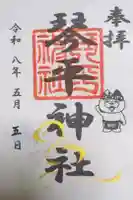 奉拝
琴平神社
令和八年五月五日